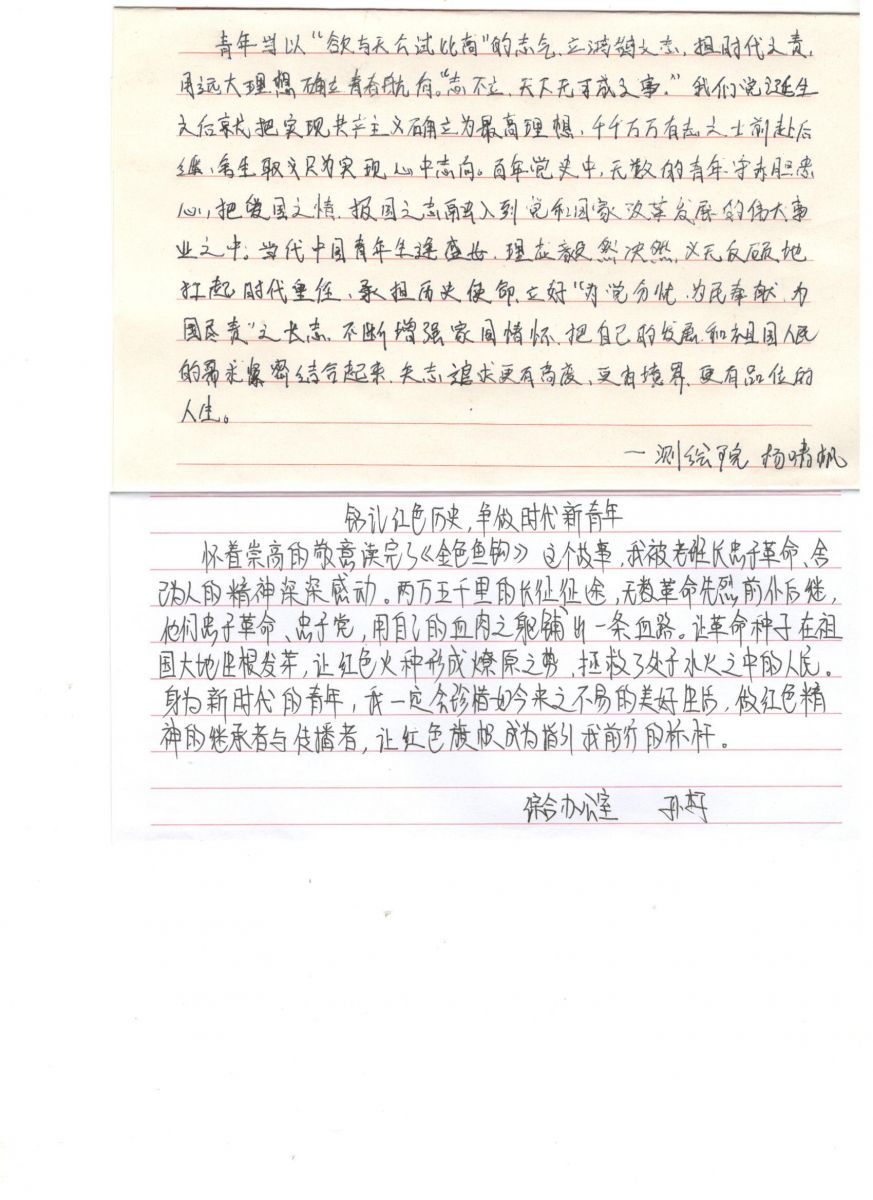 青年当以“欲与天公试比高”的志气,立鸿鹄之志,担时代之责,
用远大理想确立青春航向。“志不立,天下无可成之事。”我们党诞生
之后就把实现共产主义确立为最高理想,千千万万有志之士前赴后
继、舍生取义只为实现心中志向。百年党史中,无数的青年守赤胆忠
心,把爱国之情、报国之志融入到党和国家改革发展的伟大事
业之中。当代中国青年生逢盛世,理应毅然决然,义无反顾地
扛起时代重任、承担历史使命,立好“为党分忧、为民奉献、为
国尽责”之大志,不断增强家国情怀,把自己的发展和祖国人民
的需求紧密结合起来,矢志追求更有高度、更有境界、更有品位的
人生。
—测绘院 杨啸帆
铭记红色历史,争做时代新青年
怀着崇高的敬意读完了《金色鱼钩》这个故事,我被老班长忠于革命、舍
己为人的精神深深感动。两万五千里的长征征途,无数革命先烈前仆后继,
他们忠于革命、忠于党,用自己的血肉之躯铺出一条血路。让革命种子在祖
国大地生根发芽,让红色火种形成燎原之势,拯救了处于水火之中的人民。
身为新时代的青年,我一定会珍惜如今来之不易的美好生活,做红色精
神的继承者与传播者,让红色旗帜成为指引我前行的标杆。
综合办公室 孙好